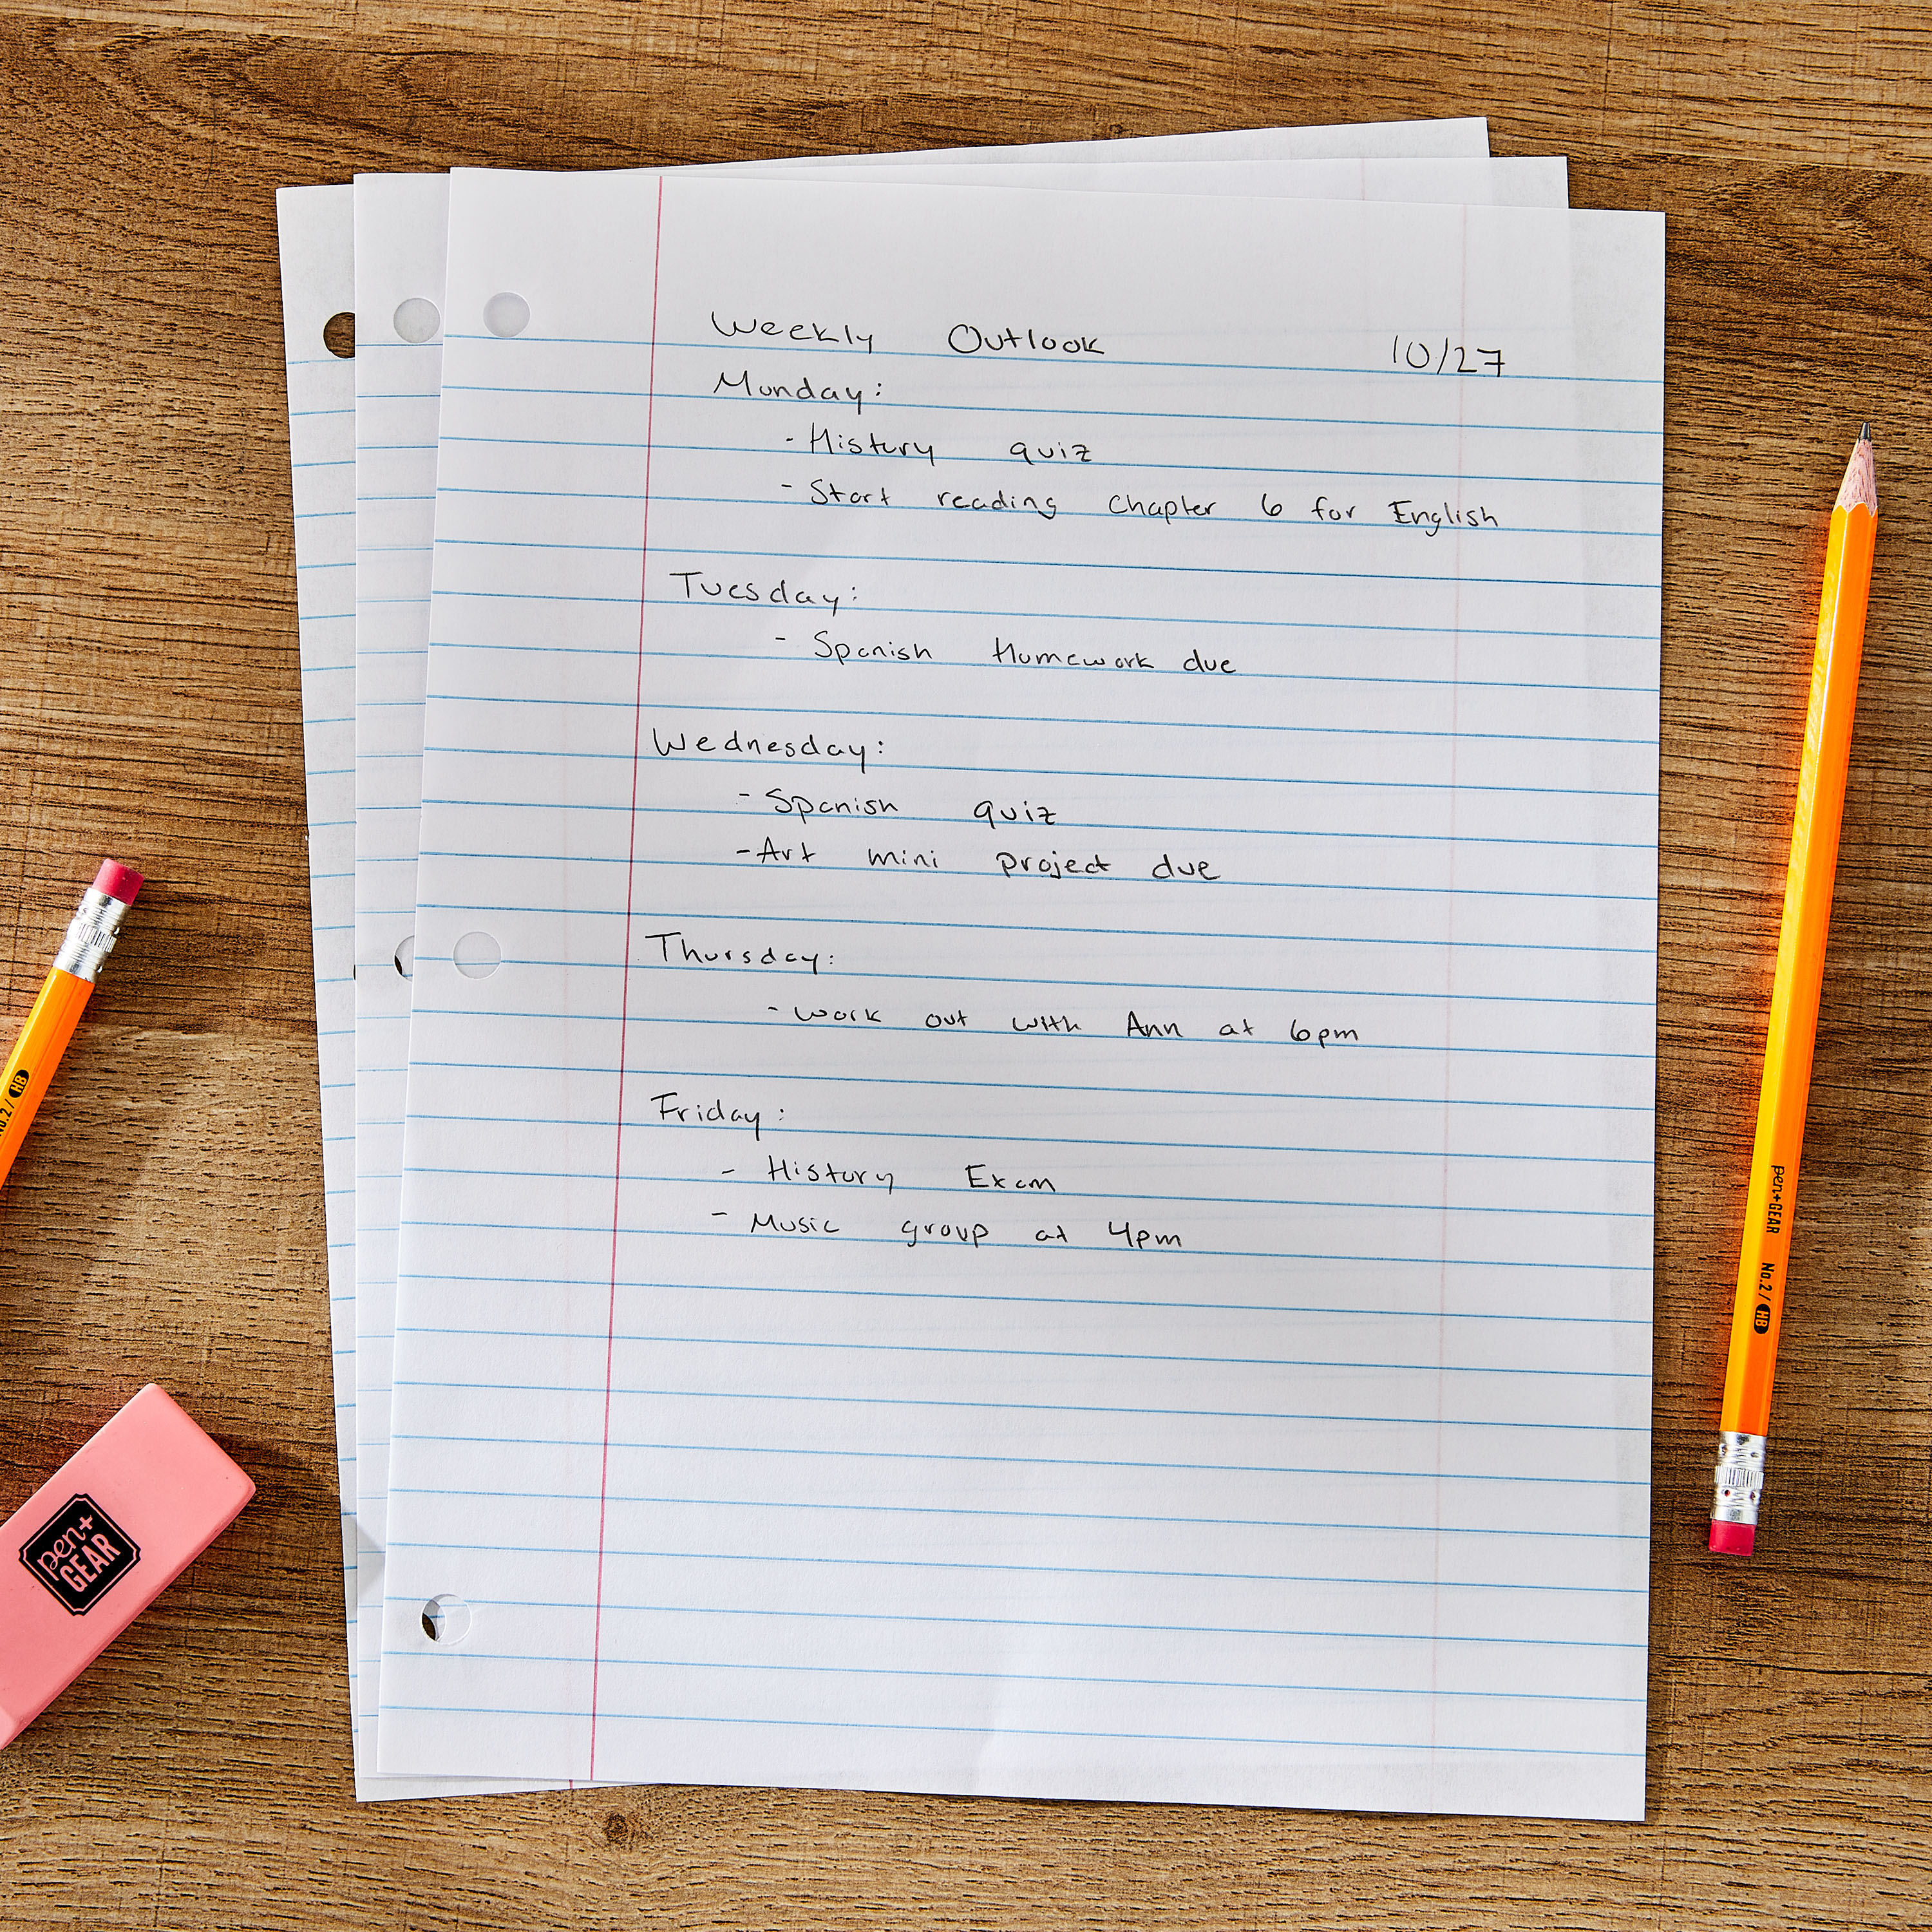 Weekly Outlook 10/27
Monday:
- History quiz
- Start reading Chapter 6 for English
Tuesday:
- Spanish Homework due
Wednesday:
- Spanish quiz
- Art mini project due
Thursday:
- work out with Ann at 6pm
Friday:
- History Exam
- Music group at 4pm
pen+GEAR No.2 / HB
No.2 / HB
pen+
GEAR